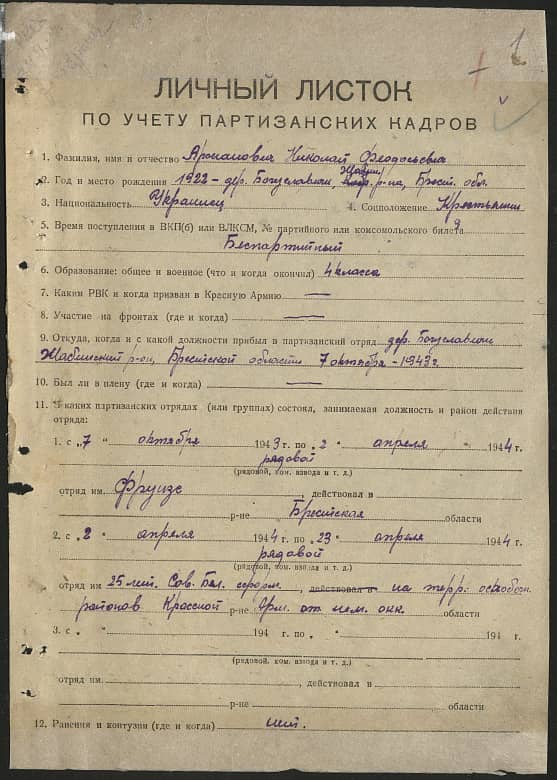 1
ЛИЧНЫЙ ЛИСТОК
ПО УЧЕТУ ПАРТИЗАНСКИХ КАДРОВ
1. Фамилия, имя и отчество Николай Феодосьевич
2. Год и место рождения 1922 – дер. Богуславичи, Жабин. р-на, Брест. обл.
3. Национальность Украинец 4. Соцположение Крестьянин
5. Время поступления в ВКП(б) или ВЛКСМ, № партийного или комсомольского билета
Беспартийный
6. Образование: общее и военное (что и когда окончил) 4 класса
7. Каким РВК и когда призван в Красную Армию —
8. Участие на фронтах (где и когда) —
9. Откуда, когда и с какой должности прибыл в партизанский отряд дер. Богуславичи
Жабинский р-он, Брестской области 7 октября – 1943 г.
10. Был ли в плену (где и когда) —
11. В каких партизанских отрядах (или группах) состоял, занимаемая должность и район действия
отряда:
1. с „7 " октября 1943 г. по „2 " апреля 1944 г.
рядовой
(рядовой, ком. взвода и т. д.)
отряд им. Фрунзе , действовал в
р-не Брестская области
2. с „2 " апреля 1944 г. по „23 " апреля 1944 г.
рядовой
(рядовой, ком. взвода и т. д.)
отряд им. 25 лет. Сов. Бел. , действовал в на терр. освобожн.
районов Красной р-не Арм. от нем. окк. области
3. с „ " 194 г. по „ " 194 г.
(рядовой, ком. взвода и т. д.)
отряд им. , действовал в
р-не области
12. Ранения и контузии (где и когда) нет.